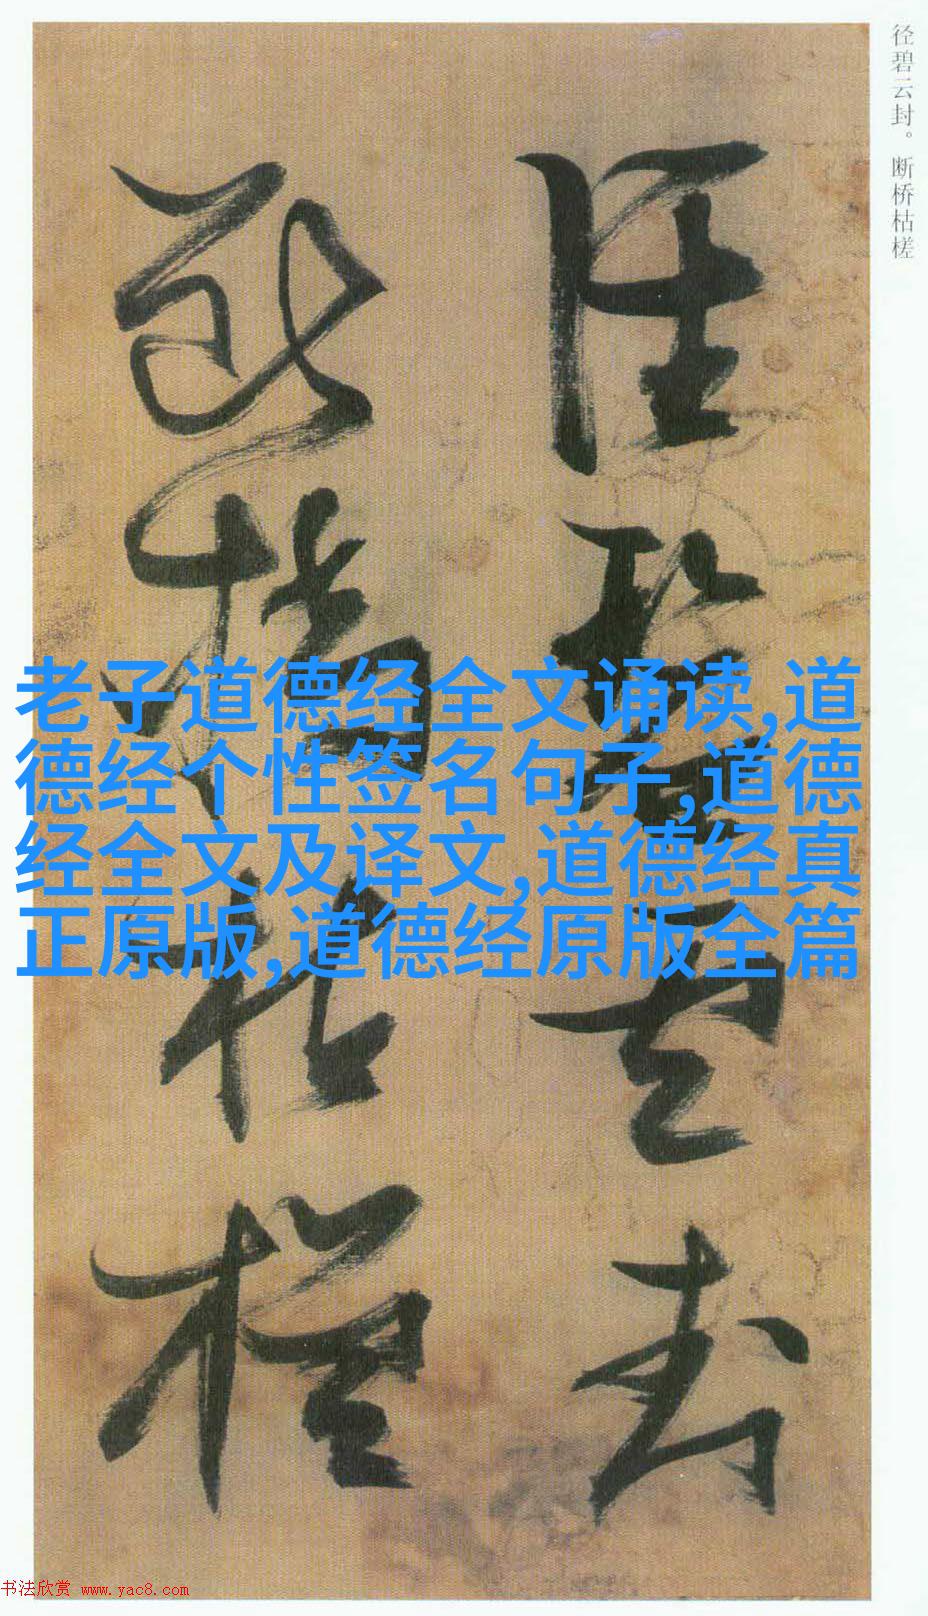 径碧云封。断桥枯槎
径碧云封
断桥枯槎
老子道德经全文诵读,道
德经个性签名句子,道德
经全文及译文,道德经真
正原版,道德经原版全篇
书法欣赏 www.yac8.com